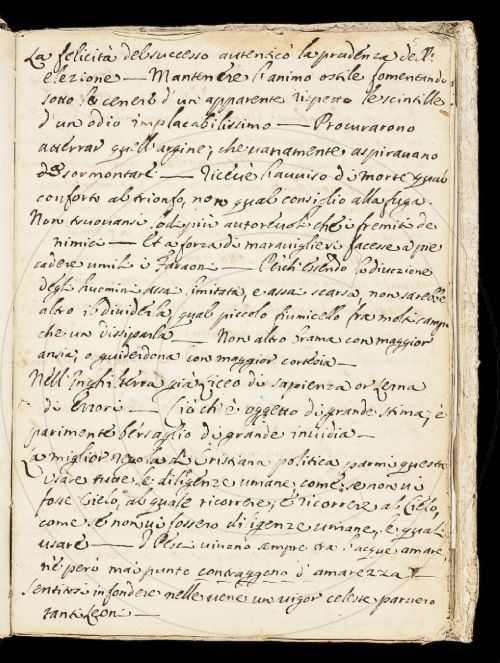 La felicità del successo autenticò la prudenza dell'
elezione — Mantenere l'animo ostile fomentando
sotto le ceneri d'un apparente rispetto le scintille
d'un odio implacabilissimo — Procurarono
atterrar quell'argine, che vanamente aspiravano
di sormontare — Ricevè l'avviso di morte qual
conforto al trionfo, non qual consiglio alla fuga.
Non truovansi lodi più autorevoli che i fremiti de
nimici — Et a forza di maraviglie si facesse a piè
cadere umili i Faraoni — Perch'essendo la divozione
degli huomini assai limitata, e assai scarsa, non sarebbe
altro il dividerla, qual piccolo fiumicello fra molti campi
che un dissiparla — Non altro brama con maggior
ansia, o guiderdona con maggior cortesia —
Nell'Inghilterra già Liceo di sapienza or Lerna
di Errori — Ciò ch'è oggetto di grande stima, è
parimente bersaglio di grande invidia —
La miglior regola di Cristiana politica parmi questa
Usare tutte le diligenze umane, come se non vi
fosse Cielo, al quale ricorrere, e ricorrere al Cielo,
come se non vi fossero diligenze umane, le quali
usare — I Pesci vivono sempre tra l'acque amare,
nè però mai punto contraggono d'amarezza
Sentitosi infondere nelle vene un vigor celeste parvero
tanti Leoni —